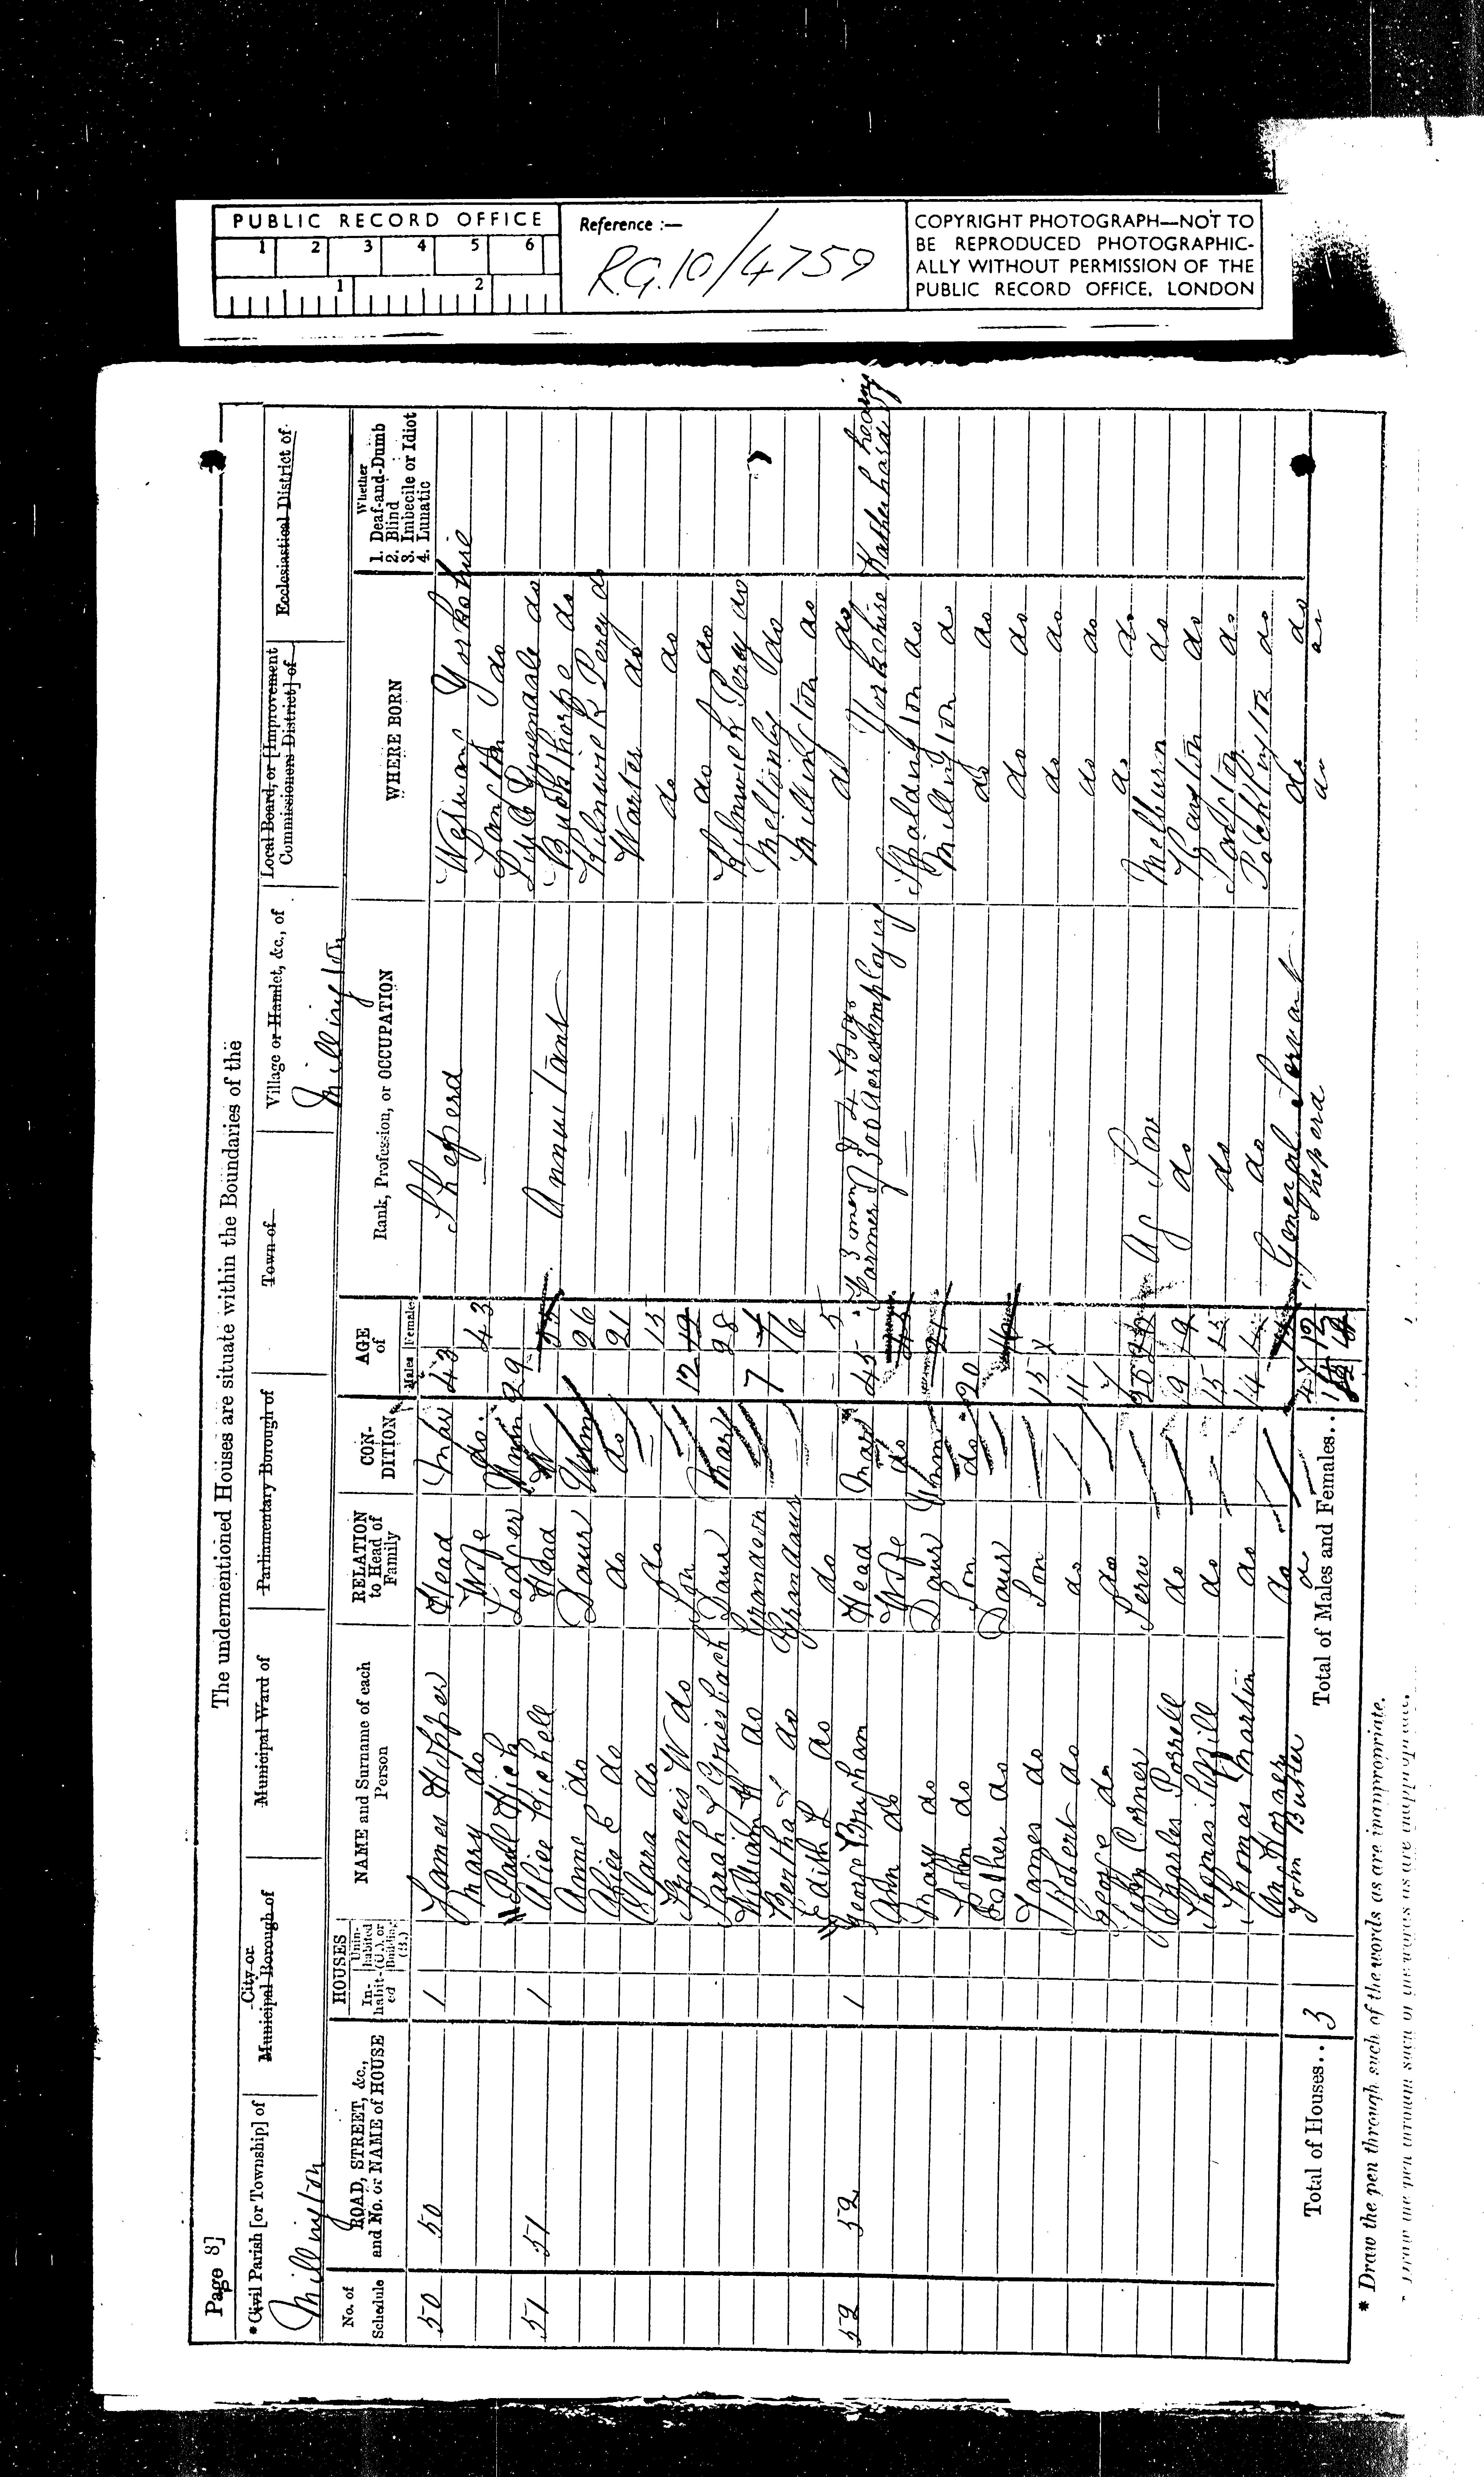 PUBLIC RECORD OFFICE
1 2 3 4 5 6
1 2
Reference :—
R.G.10/4759
COPYRIGHT PHOTOGRAPH—NOT TO
BE REPRODUCED PHOTOGRAPHIC-
ALLY WITHOUT PERMISSION OF THE
PUBLIC RECORD OFFICE, LONDON
Page 8]
The undermentioned Houses are situate within the Boundaries of the
*Civil Parish [or Township] of City or Municipal Borough of Municipal Ward of Parliamentary Borough of Town of Village or Hamlet, &c., of Local Board, or [Improvement Commissioners District] of Ecclesiastical District of
Millington Millington
No. of Schedule ROAD, STREET, &c., and No. or NAME of HOUSE HOUSES Inhabited Uninhabited (U.), or Building (B.) NAME and Surname of each Person RELATION to Head of Family CONDITION AGE of Males Females Rank, Profession, or OCCUPATION WHERE BORN Whether 1. Deaf-and-Dumb 2. Blind 3. Imbecile or Idiot 4. Lunatic
50 50 1 James Hopper Head Mar 43 Sheperd Yorkshire
Mary do Wife do 43 do
Lodger 29 do
51 51 1 Alice Head W Annuitant Buckthorpe do
Anne do Daur Unm 26 Kilnwick Percy do
Alice E do do do 21 Warter do
Clara do do 15 do do
Francis W do Son 12 do do
Sarah L Griesbach Daur Mar 28 Kilnwick Percy do
William do Grandson 7 Meltonby do
Bertha L do Grandaur 6 Millington do
Edith L do do 5 do do
52 52 1 George Brigham Head Mar 45 Farmer 300 Acres employing 3 men & 4 Boys Yorkshire Rather hard of hearing
Ann do Wife do Spaldington do
Mary do Daur Unm 21 Millington do
John do Son do 20 do do
Esther do Daur do do
James do Son 15 do do
Robert do do 11 do do
George do do 7 do do
John Corner Serv Ag Serv Melburn do
Charles Posrell do 19 do do
Thomas do 15 do do
Thomas Martin do 14 do Pocklington do
do General Servant do do
John Butler do Sheperd do do
Total of Houses.. 3 Total of Males and Females..
* Draw the pen through such of the words as are inappropriate.